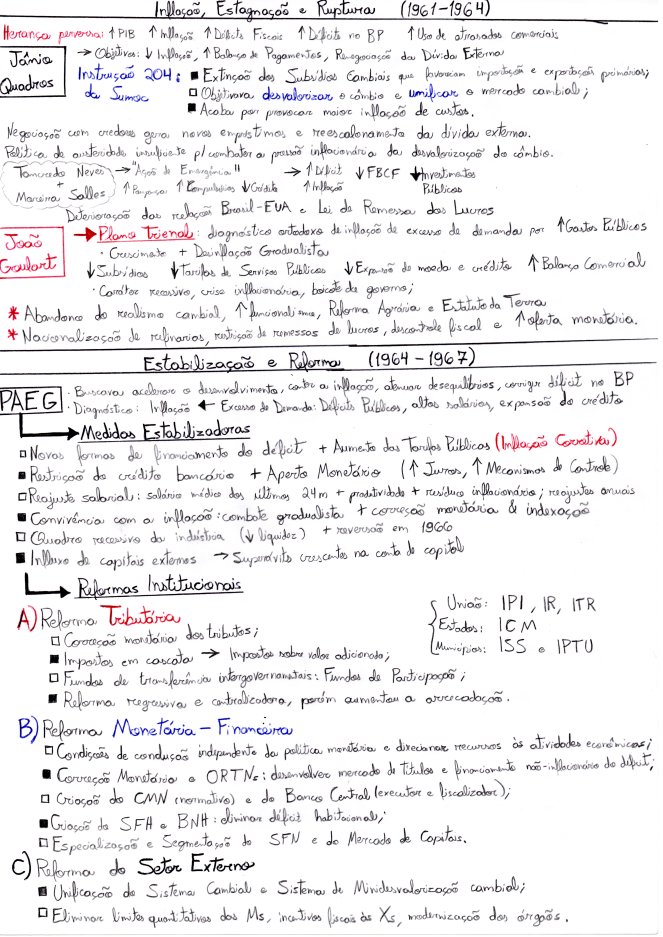 Inflação, Estagnação e Ruptura (1961-1964)
Herança perversa: ↑PIB ↑Inflação ↑Déficits Fiscais ↑Déficits no BP ↑Uso de atrasados comerciais
Jânio Quadros → Objetivos: ↓Inflação, ↑Balanço de Pagamentos, Renegociação da Dívida Externa
Instrução 204: ■ Extinção dos Subsídios Cambiais que favoreciam importação e exportação primárias;
da Sumoc □ Objetivava desvalorizar o câmbio e unificar o mercado cambial;
■ Acaba por provocar maior inflação de custos.
Negociação com credores gera novos empréstimos e reescalonamento da dívida externa.
Política de austeridade insuficiente p/ combater a pressão inflacionária da desvalorização do câmbio.
Tancredo Neves + Moreira Salles → "Ação de Emergência" → ↑Déficit ↓FBCF ↓Investimentos Públicos
↑Poupança ↑Compulsórios ↓Crédito ↑Inflação
Deterioração das relação Brasil-EUA e Lei de Remessa dos Lucros
João Goulart → Plano Trienal: diagnóstico ortodoxo de inflação de excesso de demanda por ↑Gastos Públicos
· Crescimento + Desinflação Gradualista
↓Subsídios ↓Tarifas de Serviços Públicos ↓Expansão de moeda e crédito ↑Balança Comercial
· Caráter recessivo, crise inflacionária, boicote do governo;
* Abandono do realismo cambial, ↑funcionalismo, Reforma Agrária e Estatuto da Terra
* Nacionalização de refinarias, restrição de remessas de lucros, descontrole fiscal e ↑oferta monetária.
Estabilização e Reforma (1964-1967)
PAEG · Buscava acelerar o desenvolvimento, conter a inflação, atenuar desequilíbrios, corrigir déficit no BP
· Diagnóstico: Inflação ← Excesso de Demanda: Déficits Públicos, altos salários, expansão do crédito
→ Medidas Estabilizadoras
□ Novas formas de financiamento do déficit + Aumento das Tarifas Públicas (Inflação Corretiva)
■ Restrição do crédito bancário + Aperto Monetário (↑Juros, ↑Mecanismos de Controle)
□ Reajuste salarial: salário médio dos últimos 24m + produtividade + resíduo inflacionário; reajustes anuais
■ Convivência com a inflação: combate gradualista + correção monetária & indexação
□ Quadro recessivo da indústria (↓liquidez) + reversão em 1966
■ Influxo de capitais externos → Superávits crescentes na conta de capital
→ Reformas Institucionais
A) Reforma Tributária
□ Correção monetária dos tributos;
■ Impostos em cascata → Impostos sobre valor adicionado;
□ Fundos de transferência intergovernamentais: Fundos de Participação;
■ Reforma regressiva e centralizadora, porém aumentou a arrecadação.
União: IPI, IR, ITR
Estados: ICM
Municípios: ISS e IPTU
B) Reforma Monetária - Financeira
□ Condições de condução independente da política monetária e direcionar recursos às atividades econômicas;
■ Correção Monetária e ORTNs: desenvolver mercado de títulos e financiamento não-inflacionário do déficit;
□ Criação do CMN (normativo) e do Banco Central (executor e fiscalizador);
■ Criação do SFH e BNH: eliminar déficit habitacional;
□ Especialização e Segmentação do SFN e do Mercado de Capitais.
C) Reforma do Setor Externo
■ Unificação do Sistema Cambial e Sistema de Minidesvalorização cambial;
□ Eliminar limites quantitativos das Ms, incentivos fiscais às Xs, modernização dos órgãos.